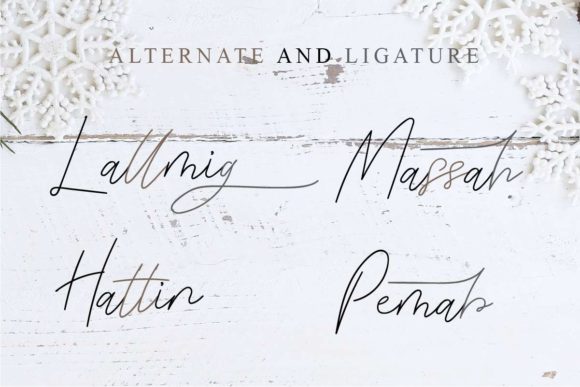 ALTERNATE AND LIGATURE
Lallmig Massah
Hattin Pemab